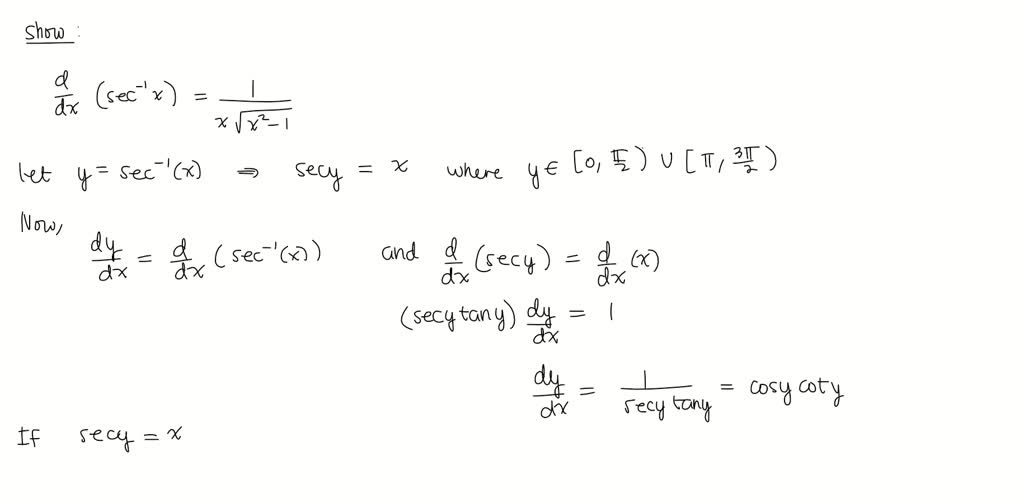 Show:
d/dx (sec⁻¹x) = 1/(x√(x²-1))
Let y = sec⁻¹(x) ⇒ secy = x where y ∈ [0, π/2) ∪ [π, 3π/2)
Now,
dy/dx = d/dx (sec⁻¹(x)) and d/dx (secy) = d/dx (x)
(secy tany) dy/dx = 1
dy/dx = 1/(secy tany) = cosy coty
If secy = x